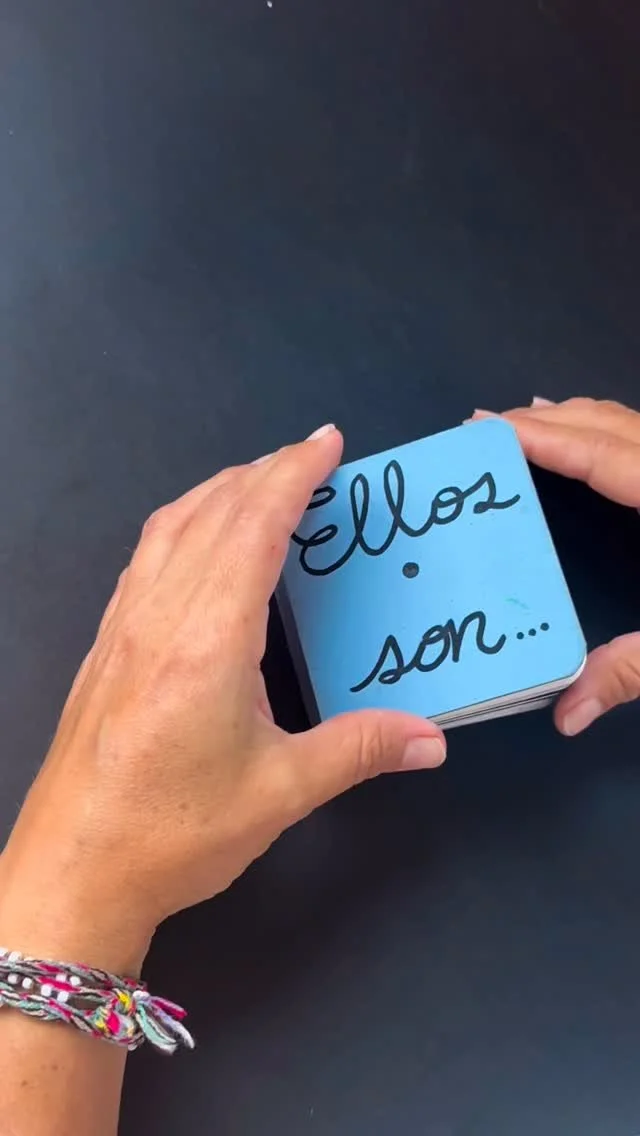 Ellos
son...